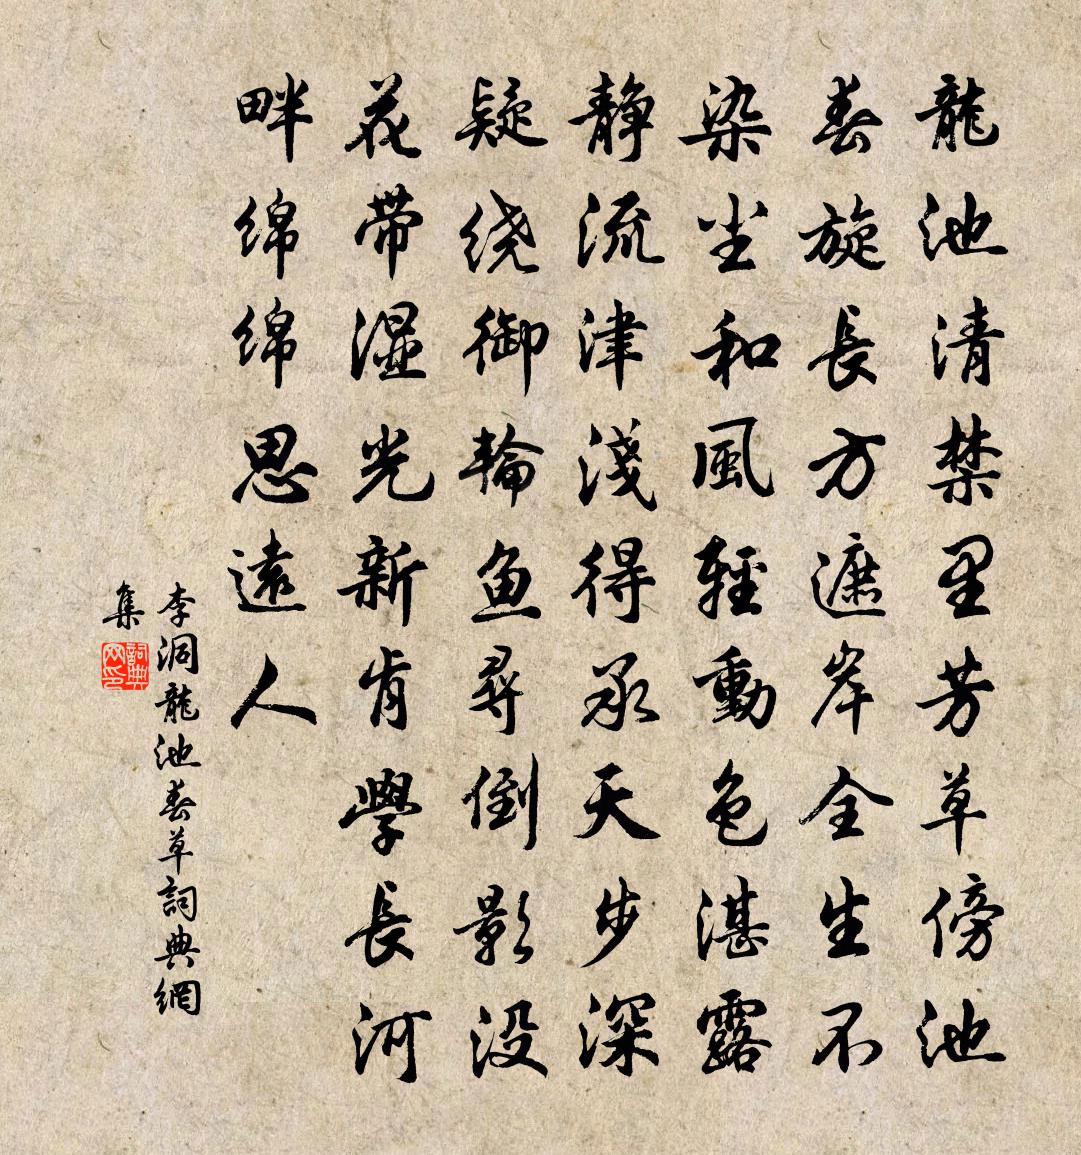 龍池清禁里芳草傍池
春旋長方遮岸全生不
染尘和風輕動色湛露
静流津淺得承天步深
疑绕御輪鱼尋倒影没
花带湿光新肯學長河
畔绵绵思遠人
李洞龍池春草詞典網
集
詞典
网印